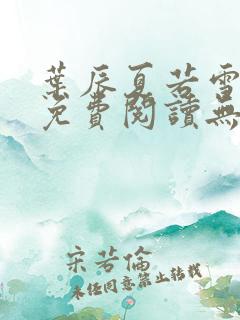 葉辰夏若雪
免費閱讀無
宋若倫
未經同意禁止轉載